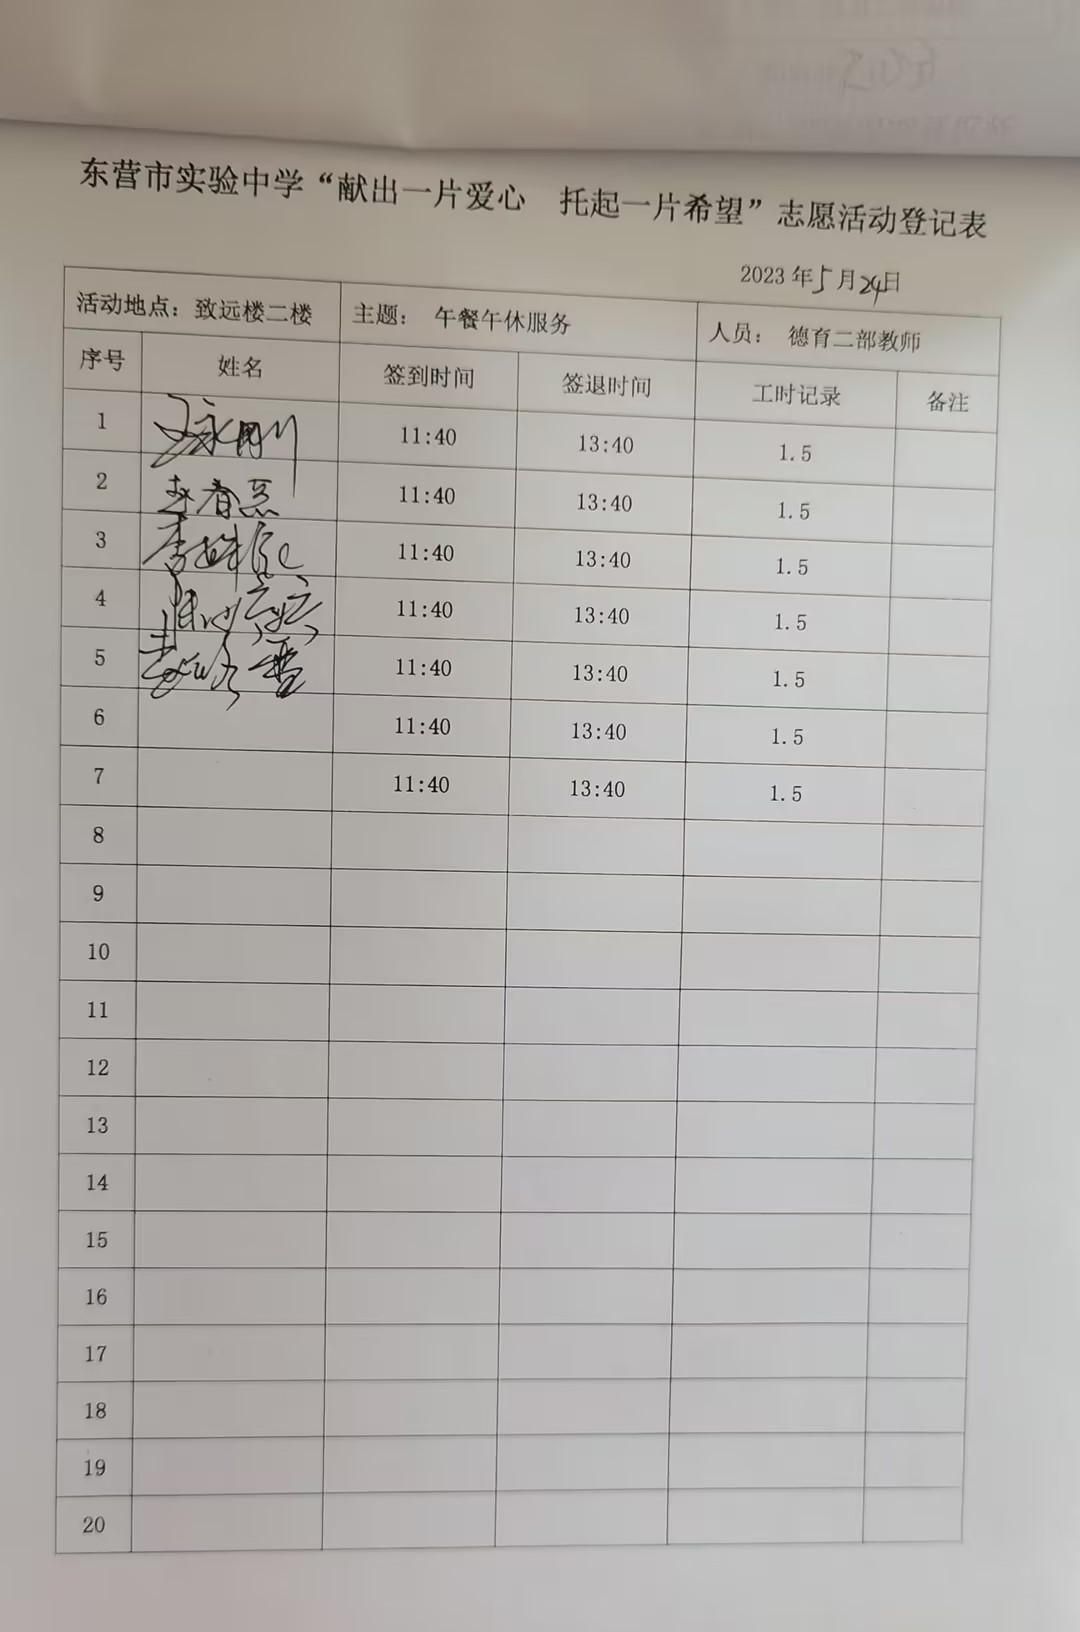 东营市实验中学“献出一片爱心 托起一片希望”志愿活动登记表
2023 年 5 月 24 日
活动地点：致远楼二楼 主题： 午餐午休服务 人员： 德育二部教师
序号 姓名 签到时间 签退时间 工时记录 备注
1 永刚 11:40 13:40 1.5
2 春 11:40 13:40 1.5
3 李 11:40 13:40 1.5
4 11:40 13:40 1.5
5 11:40 13:40 1.5
6 11:40 13:40 1.5
7 11:40 13:40 1.5
8
9
10
11
12
13
14
15
16
17
18
19
20